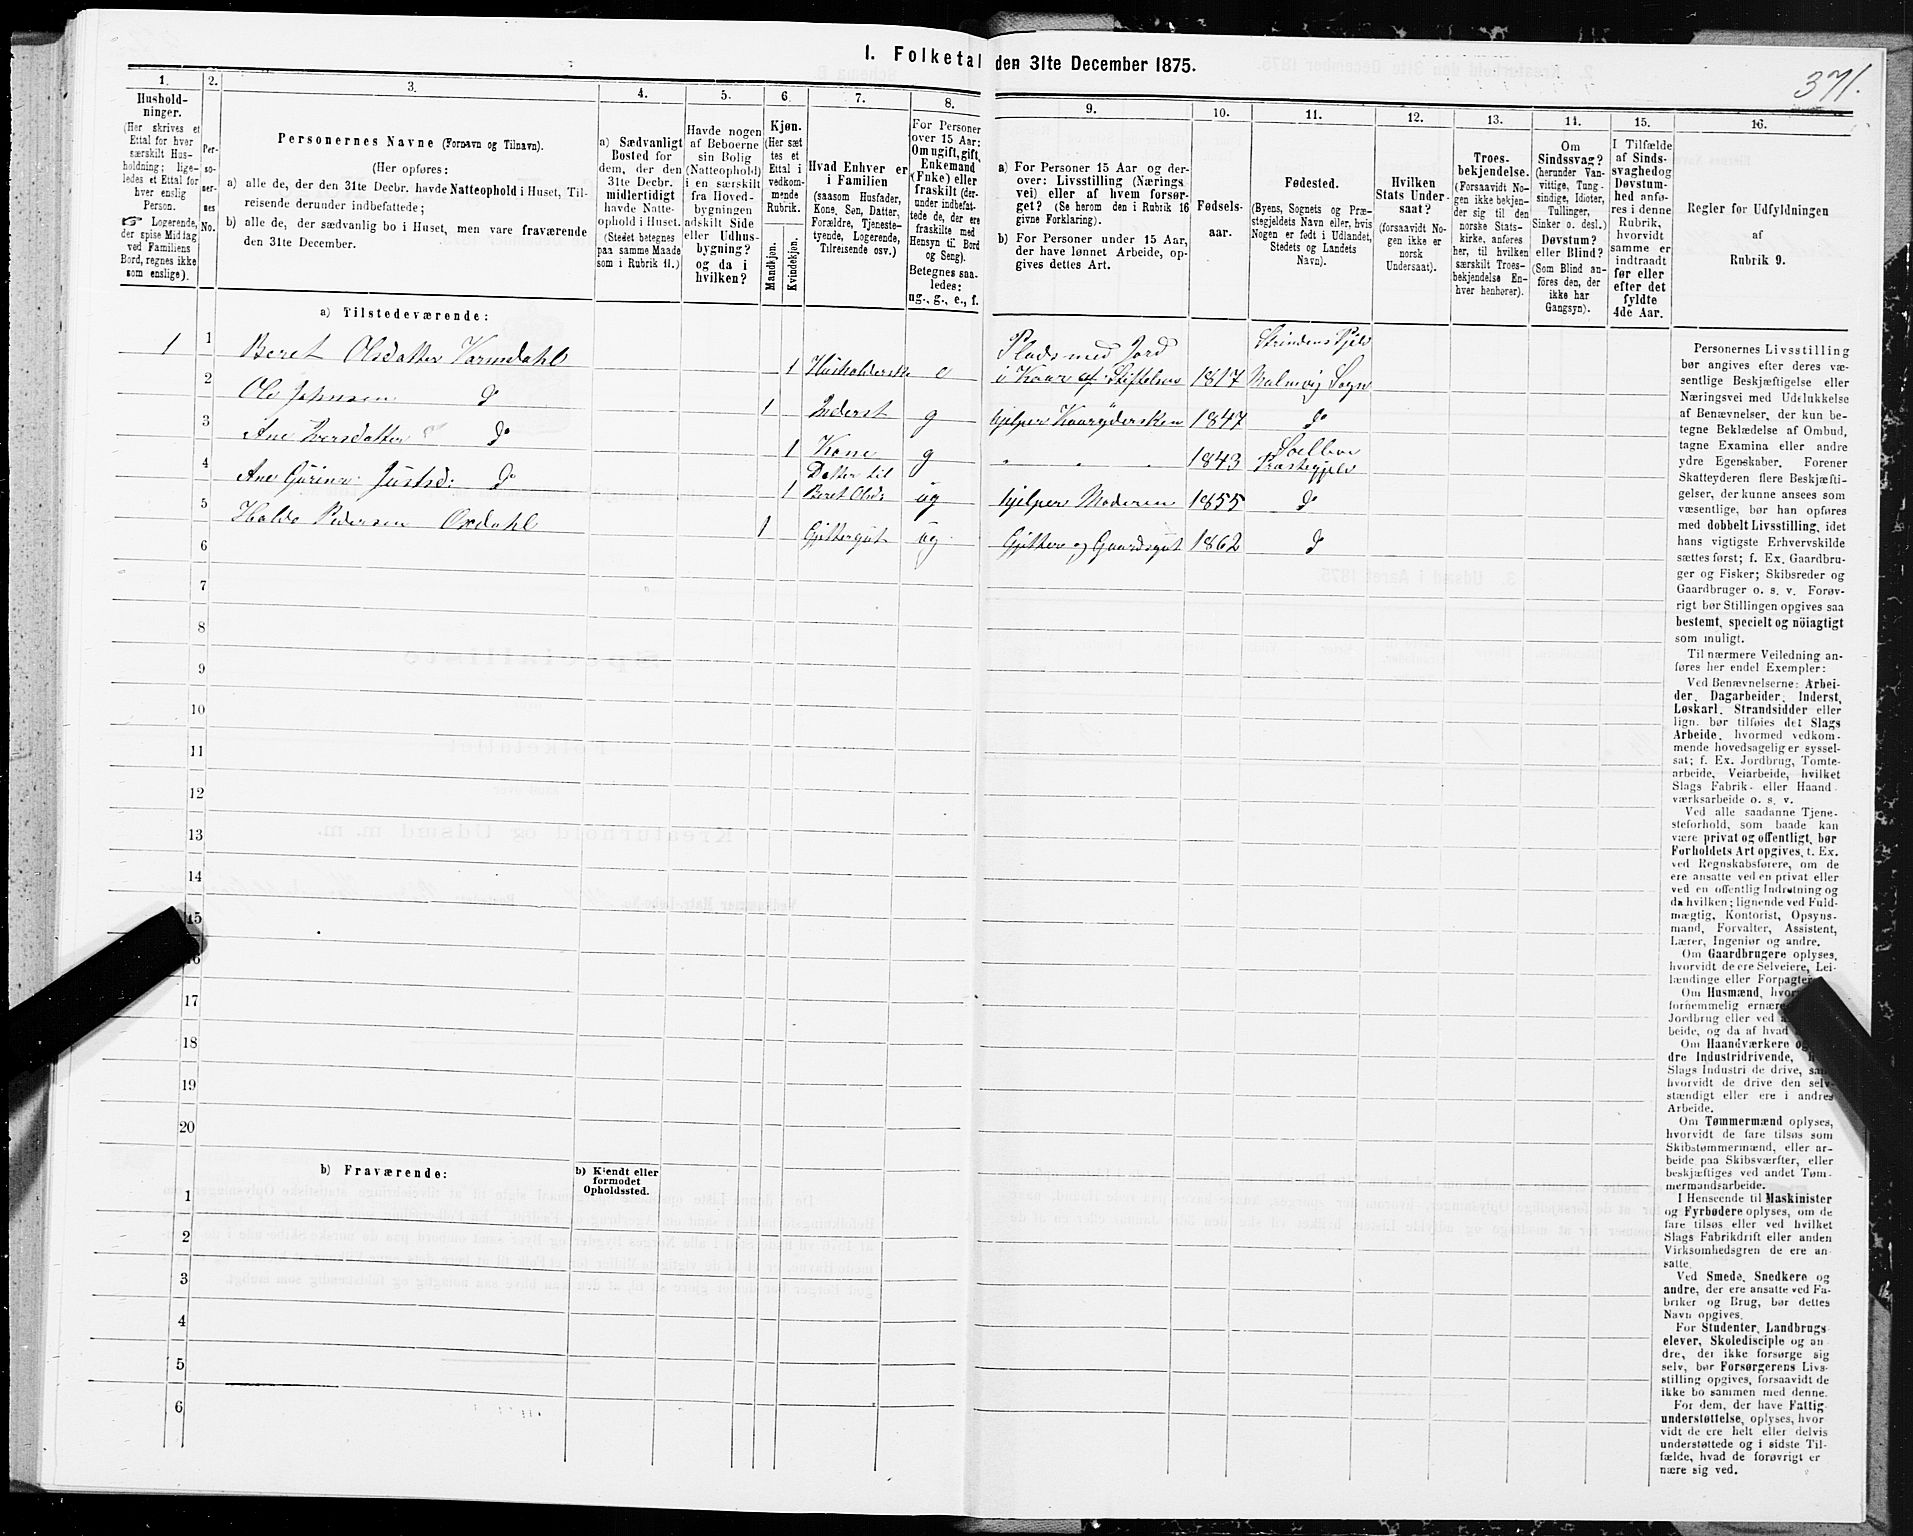 I. Folketal den 31te December 1875.
371.
1.
Hushold-
ninger.
(Her skrives et
Ettal for hver
særskilt Hus-
holdning; lige-
ledes et Ettal for
hver enslig
Person.
☞ Logerende,
der spise Middag
ved Familiens
Bord, regnes ikke
som enslige).
2.
Per-
so-
ner-
nes
No.
3.
Personernes Navne (Fornavn og Tilnavn).
(Her opføres:
a) alle de, der den 31te Decbr. havde Natteophold i Huset, Til-
reisende derunder indbefattede;
b) alle de, der sædvanlig bo i Huset, men vare fraværende
den 31te December.
4.
a) Sædvanligt
Bosted for
dem, der den
31te Decbr.
midlertidigt
havde Natte-
ophold i Huset.
(Stedet betegnes
paa samme Maade
som i Rubrik 11.)
5.
Havde nogen
af Beboerne
sin Bolig
(Natteophold)
i en særskilt
fra Hoved-
bygningen
adskilt Side
eller Udhus-
bygning?
og da i
hvilken?
6.
Kjøn.
(Her sæt
tes et
Ettal i
vedkom-
mende
Rubrik.
Mandkjøn.
Kvindekjøn.
7.
Hvad Enhver er
i Familien
(saasom Husfader,
Kone, Søn, Datter,
Forældre, Tjeneste-
tyende, Logerende,
Tilreisende osv.)
8.
For Personer
over 15 Aar:
Om ugift, gift,
Enkemand
(Enke) eller
fraskilt (der-
under indbefat-
tede de, der ere
fraskilte med
Hensyn til Bord
og Seng).
Betegnes saa-
ledes:
ug., g., e., f.
9.
a) For Personer 15 Aar og der-
over: Livsstilling (Nærings
vei) eller af hvem forsør-
get? (Se herom den i Rubrik 16
givne Forklaring).
b) For Personer under 15 Aar,
der have lønnet Arbeide, op-
gives dettes Art.
10.
Fødsels-
aar.
11.
Fødested.
(Byens, Sognets og Præ-
stegjeldets Navn eller, hvis
Nogen er født i Udlandet,
Stedets og Landets
Navn).
12.
Hvilken
Stats Under-
saat?
(forsaavidt No-
gen ikke er
norsk
Undersaat).
13.
Troes-
bekjendelse.
(Forsaavidt No-
gen ikke bekjen-
der sig til den
norske Stats-
kirke, anføres
her, til hvilken
særskilt Troes-
bekjendelse En-
hver henhører).
14.
Om
Sindssvag?
(herunder Van-
vittige, Tung-
sindige, Idioter,
Tullinger,
Sinker o. desl.)
Døvstum?
eller Blind?
(Som Blind an-
føres den, der
ikke har
Gangsyn).
15.
I Tilfælde
af Sinds-
svaghed og
Døvstum-
hed anfø-
res i denne
Rubrik,
hvorvidt
samme er
indtraadt
før eller
efter det
fyldte
4de Aar.
16.
Regler for Udfyldningen
af
Rubrik 9.
a) Tilstedeværende:
1 1 Beret Olsdatter Varmdahl 1 Husholderske e Plads med Jord
i Kaar af Stiftelsen 1817 Strindens Pjeld
Malmvig Sogn
2 Ole Johnsen do 1 Inderst g hjelper Kaarydersken 1847 do
3 Ane Iversdatter do 1 Kone g " " " 1843 Selbo
Præstegjeld
4 Ane Gurine Justsd: do 1 Datter til
Beret Olsd. ug hjelper Moderen 1855 do
5 Haldo Pedersen Oxdahl 1 Gjettergut ug Gjetter og Gaardsgut 1862 do
6
7
8
9
10
11
12
13
14
15
16
17
18
19
20
b) Fraværende:
b) Kjendt eller
formodet
Opholdssted.
1
2
3
4
5
6
Personernes Livsstilling
bør angives efter deres væ-
sentlige Beskjæftigelse eller
Næringsvei med Udelukkelse
af Benævnelser, der kun be-
tegne Beklædelse af Ombud,
tagne Examina eller andre
ydre Egenskaber. Forener
Skatteyderen flere Beskjæfti-
gelser, der kunne ansees som
væsentlige, bør han opføres
med dobbelt Livsstilling, idet
hans vigtigste Erhvervskilde
sættes først; f. Ex. Gaardbru-
ger og Fisker; Skibsreder og
Gaardbruger o. s. v. Forøv-
rigt bør Stillingen opgives saa
bestemt, specielt og nöiagtigt
som muligt.
Til nærmere Veiledning an-
føres her endel Exempler:
Ved Benævnelserne: Arbei-
der, Dagarbeider, Inderst,
Løskarl, Strandsidder eller
lign. bør tilføies det Slags
Arbeide, hvormed vedkom-
mende hovedsagelig er syssel-
sat; f. Ex. Jordbrug, Tomte-
arbeide, Veiarbeide, hvilket
Slags Fabrik- eller Haand-
værksarbeide o. s. v.
Ved alle saadanne Tjene-
steforhold, som baade kan
være privat og offentligt, bør
Forholdets Art opgives, t. Ex.
ved Regnskabsførere, om de
ere ansatte ved en privat eller
ved en offentlig Indretning og
da hvilken; lignende ved Fuld-
mægtig, Kontorist, Opsyns-
mand, Forvalter, Assistent,
Lærer, Ingeniør og andre.
Om Gaardbrugere oplyses,
hvorvidt de ere Selveiere, Lei-
lændinge eller Forpagter
Om Husmænd, hvor
fornemmelig ernære
Jordbrug eller ved
beide, og da af hvad
Om Haandværkere og
dre Industridrivende,
Slags Industri de drive, sam
hvorvidt de drive den selv-
stændigt eller ere i andres
Arbeide.
Om Tømmermænd oplyses,
hvorvidt de fare tilsøs som
Skibstømmermænd, eller ar-
beide paa Skibsværfter, eller
beskjæftiges ved andet Tøm-
mermandsarbeide.
I Henseende til Maskinister
og Fyrbødere oplyses, om de
fare tilsøs eller ved hvilket
Slags Fabrikdrift eller anden
Virksomhedsgren de ere an-
satte.
Ved Smede, Snedkere og
andre, der ere ansatte ved Fa-
briker og Brug, bør dettes
Navn opgives.
For Studenter, Landbrugs-
elever, Skoledisciple og an-
dre, der ikke forsørge sig
selv, bør Forsørgerens Livs-
stilling opgives, forsaavidt de
ikke bo sammen med denne.
For dem, der have Fattig-
understøttelse, oplyses, hvor
vidt de ere helt eller delvis
understøttede og i sidste Til-
fælde, hvad de forøvrigt er
nære sig ved.